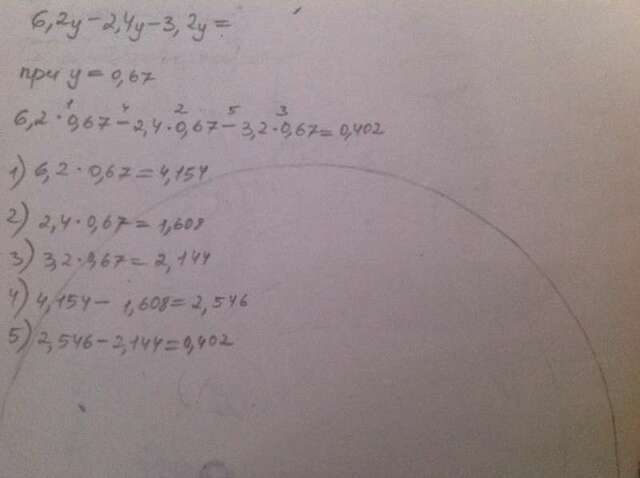 6,2y-2,4y-3,2y=
при y=0,67
6,2·0,67-2,4·0,67-3,2·0,67=0,402
1) 6,2·0,67=4,154
2) 2,4·0,67=1,608
3) 3,2·0,67=2,144
4) 4,154-1,608=2,546
5) 2,546-2,144=0,402